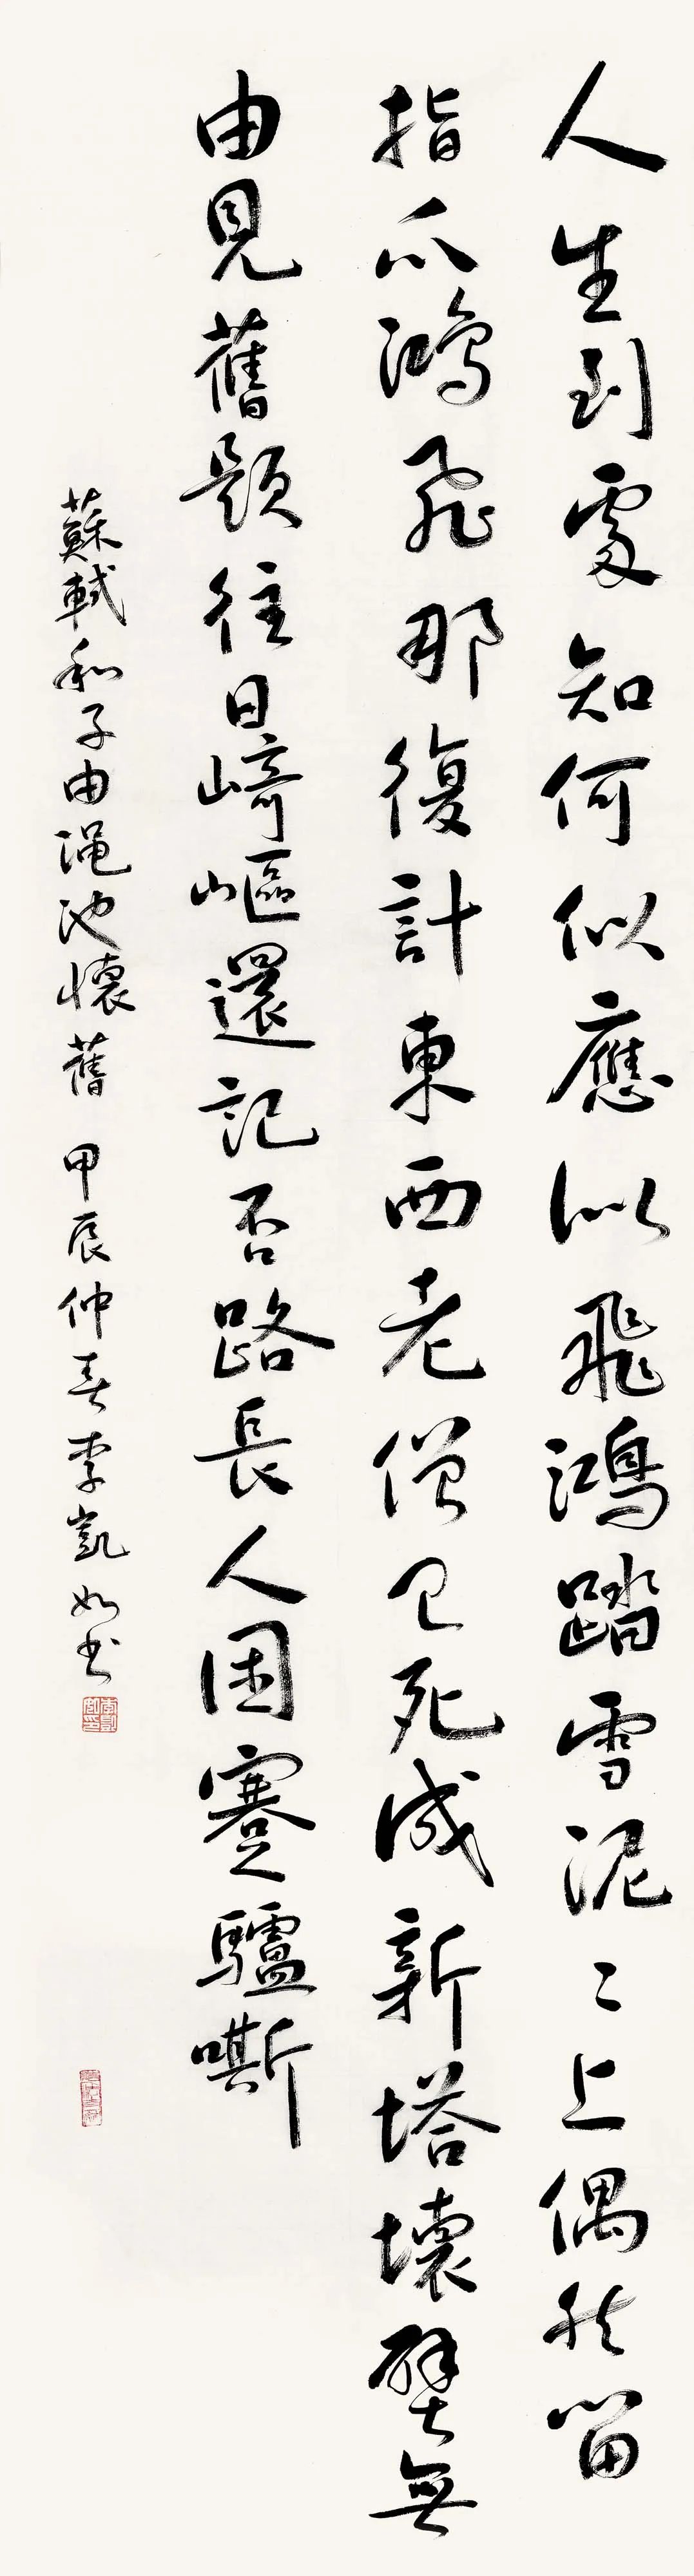 人生到處知何似應似飛鴻踏雪泥〻上偶然留
指爪鴻飛那復計東西老僧已死成新塔壞壁無
由見舊題往日崎嶇還記否路長人困蹇驢嘶
蘇軾和子由澠池懷舊 甲辰仲春李凱如书